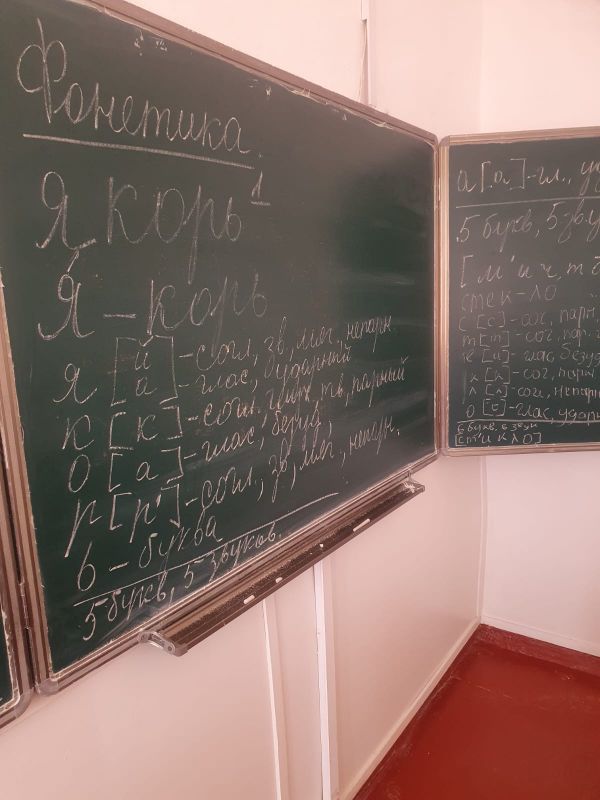 Фонетика.
Якорь¹
Я́ – корь
я [й] – согл, зв, мяг, непарн.
[а] – глас, ударный
к [к] – согл. глух, тв, парный
о [а] – глас, безуд,
р [р'] – согл, зв, мяг, непарн.
ь – буква
5 букв, 5 звуков.
а [а] – гл., уд
5 букв, 5 зву
[м'и ч, т
стек – ло
с [с] – сог, парн,
т [т'] – сог, пар. г
е [и] – глас, безуд
к [к] – сог, парн
л [л] – согл, непарн
о – глас, ударн
6 букв. 6 звук
[ст'и к л О]